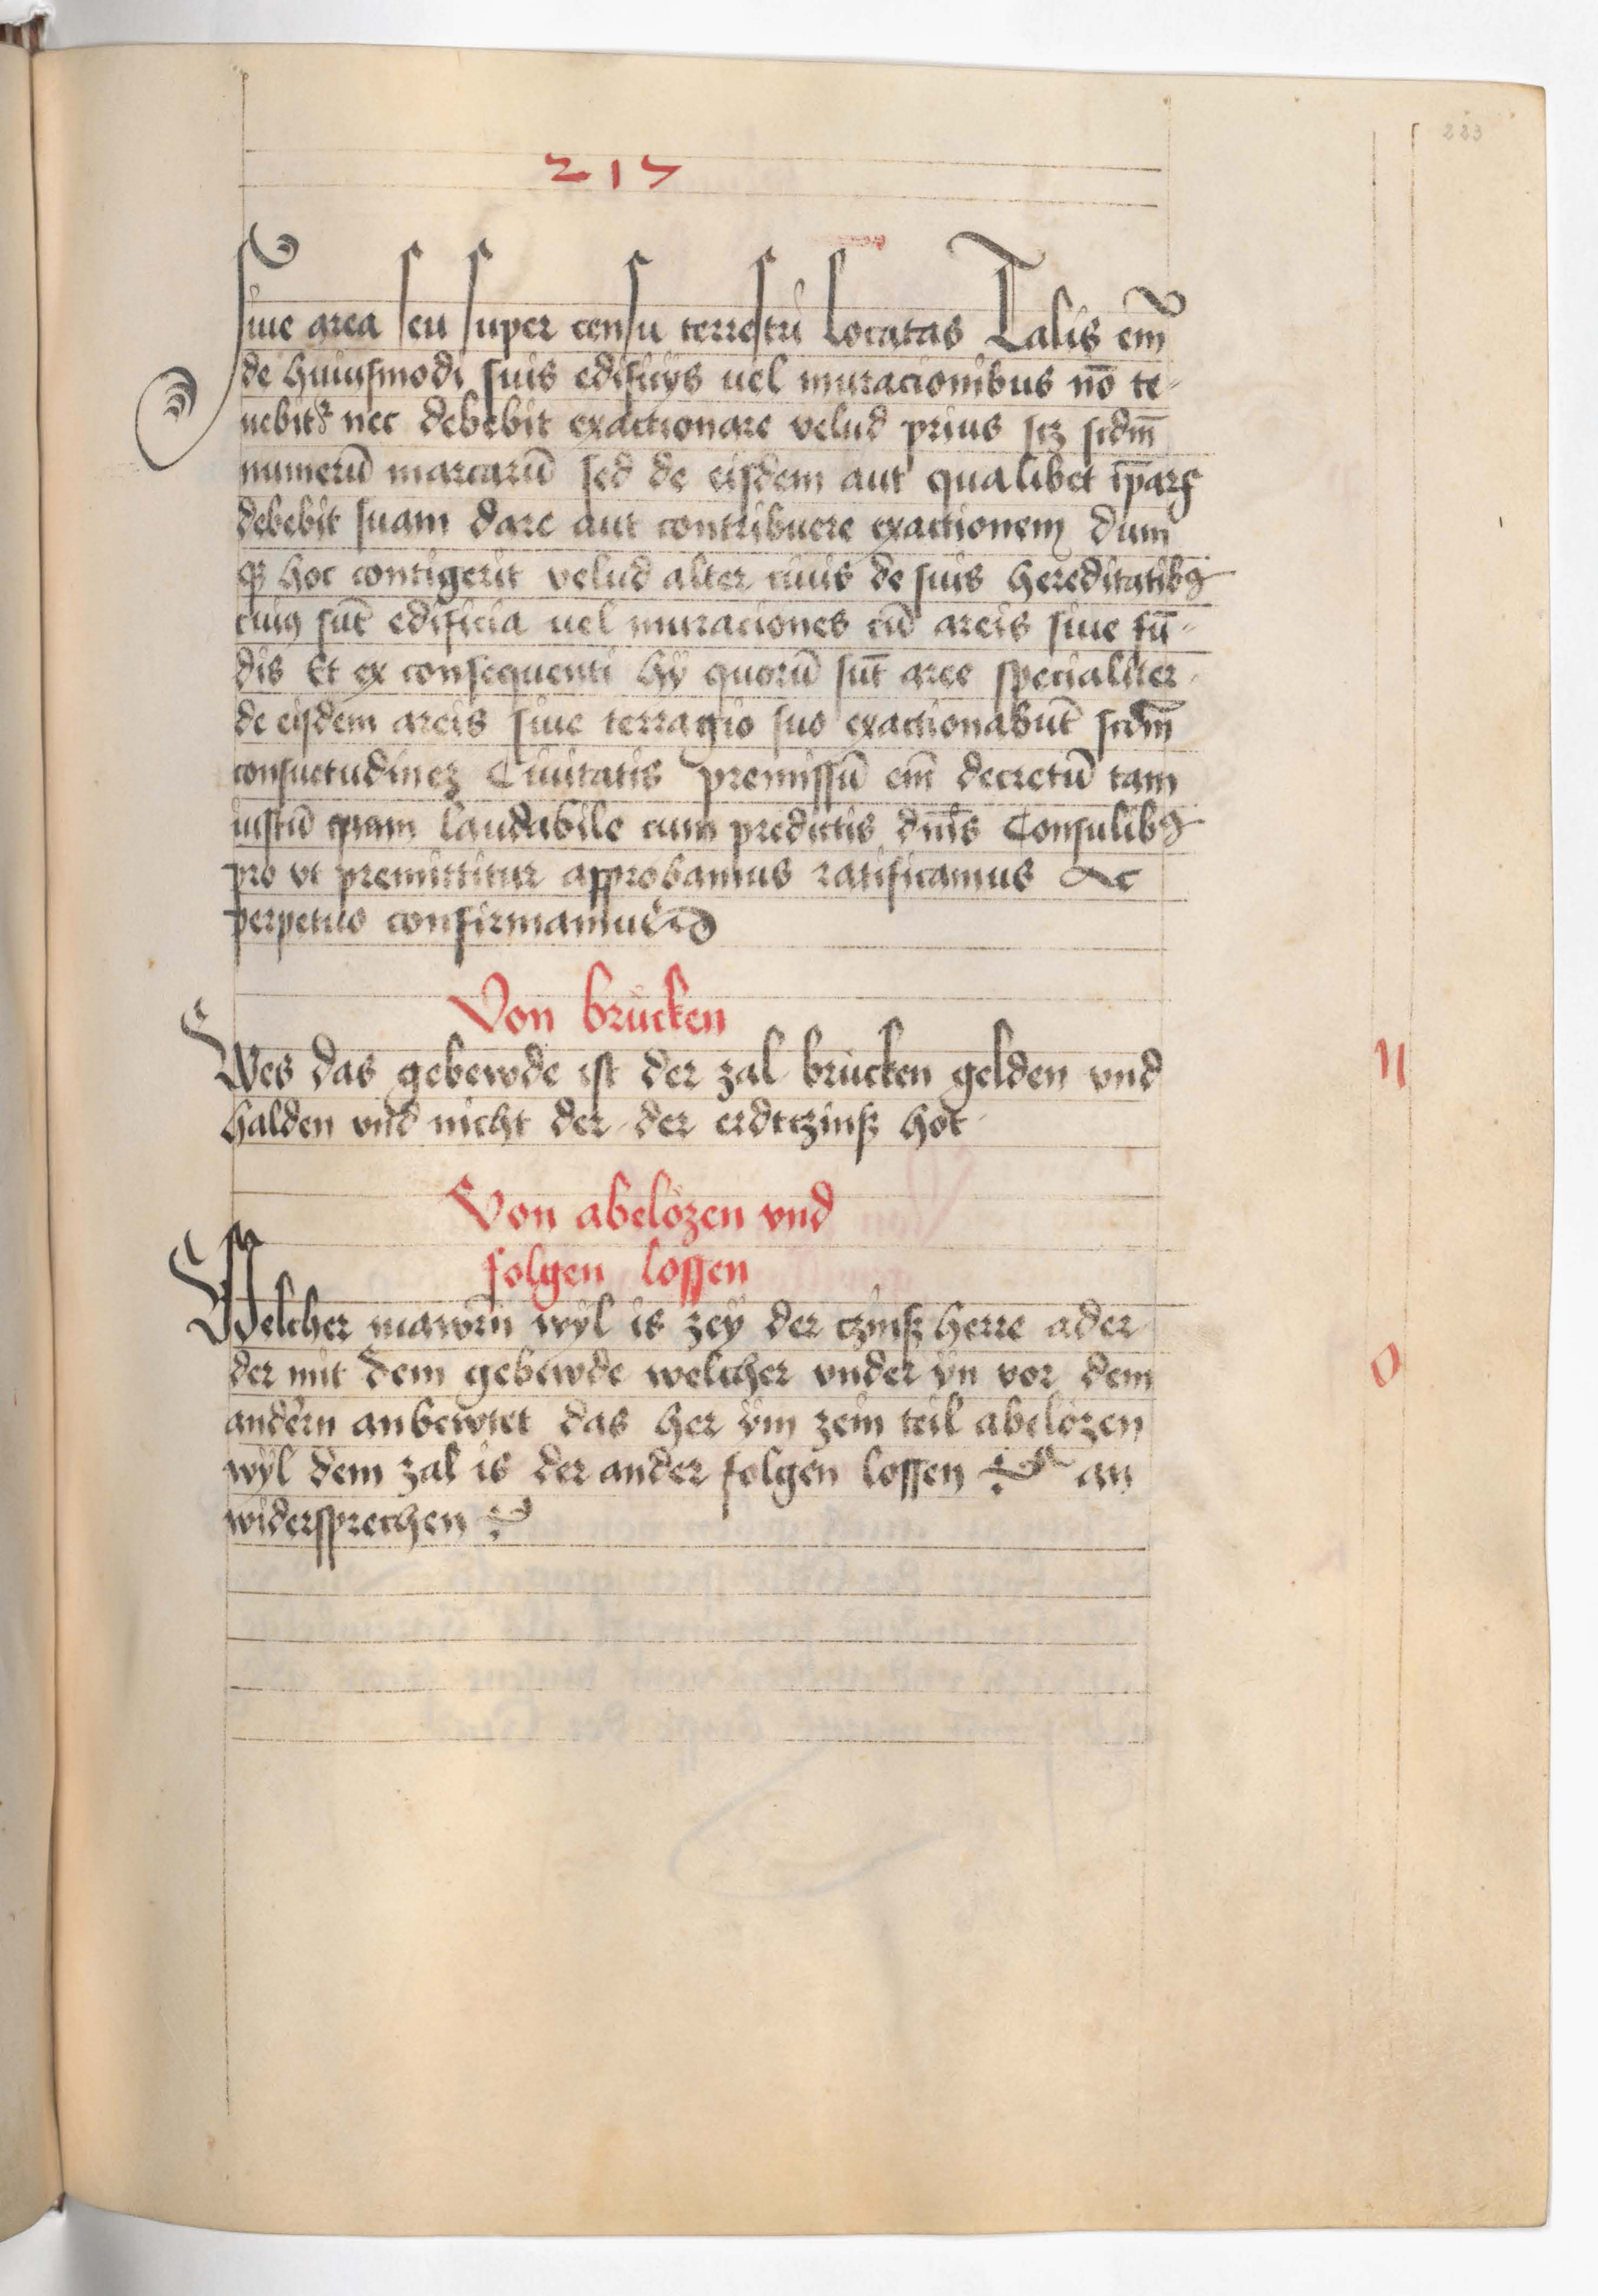 217
223
siue area seu super censu terrestri locatas Talis em̄
de huiusmodi suis edificijs uel muracionibus nō te-
nebitꝛ nec debebit exactionare velud prius scꝫ scdm̄
numerū marcarū sed de eisdem aut qualibet ip̄arꝫ
debebit suam dare aut contribuere exactionem dum
hoc contigerit velud alter ciuis de suis hereditatibꝰ
cuiꝰ sūt edificia uel muraciones cū areis siue fū-
dis Et ex consequenti hÿ quorū sūt aree specialiter
de eisdem areis siue terragio suo exactionabūt scdm̄
consuetudineꝫ Ciuitatis premissū em̄ decretū tam
iustū quam laudabile cum predictis dn̄is Consulibꝰ
pro vt premittitur approbamus ratificamus Ac
perpetuo confirmamus
Von brücken
Wes das gebewde ist der zal brücken gelden vnd
halden vnd nicht der der erdtczinß hot
n
Von abelözen vnd
folgen lossen
Welcher mawrn wyl is zey der czinß herre ader
der mit dem gebewde welcher vnder ÿn vor dem
andern anbewtet das her ÿm zein teil abelözen
wÿl dem zal is der ander folgen lossen an
widersprechen
o